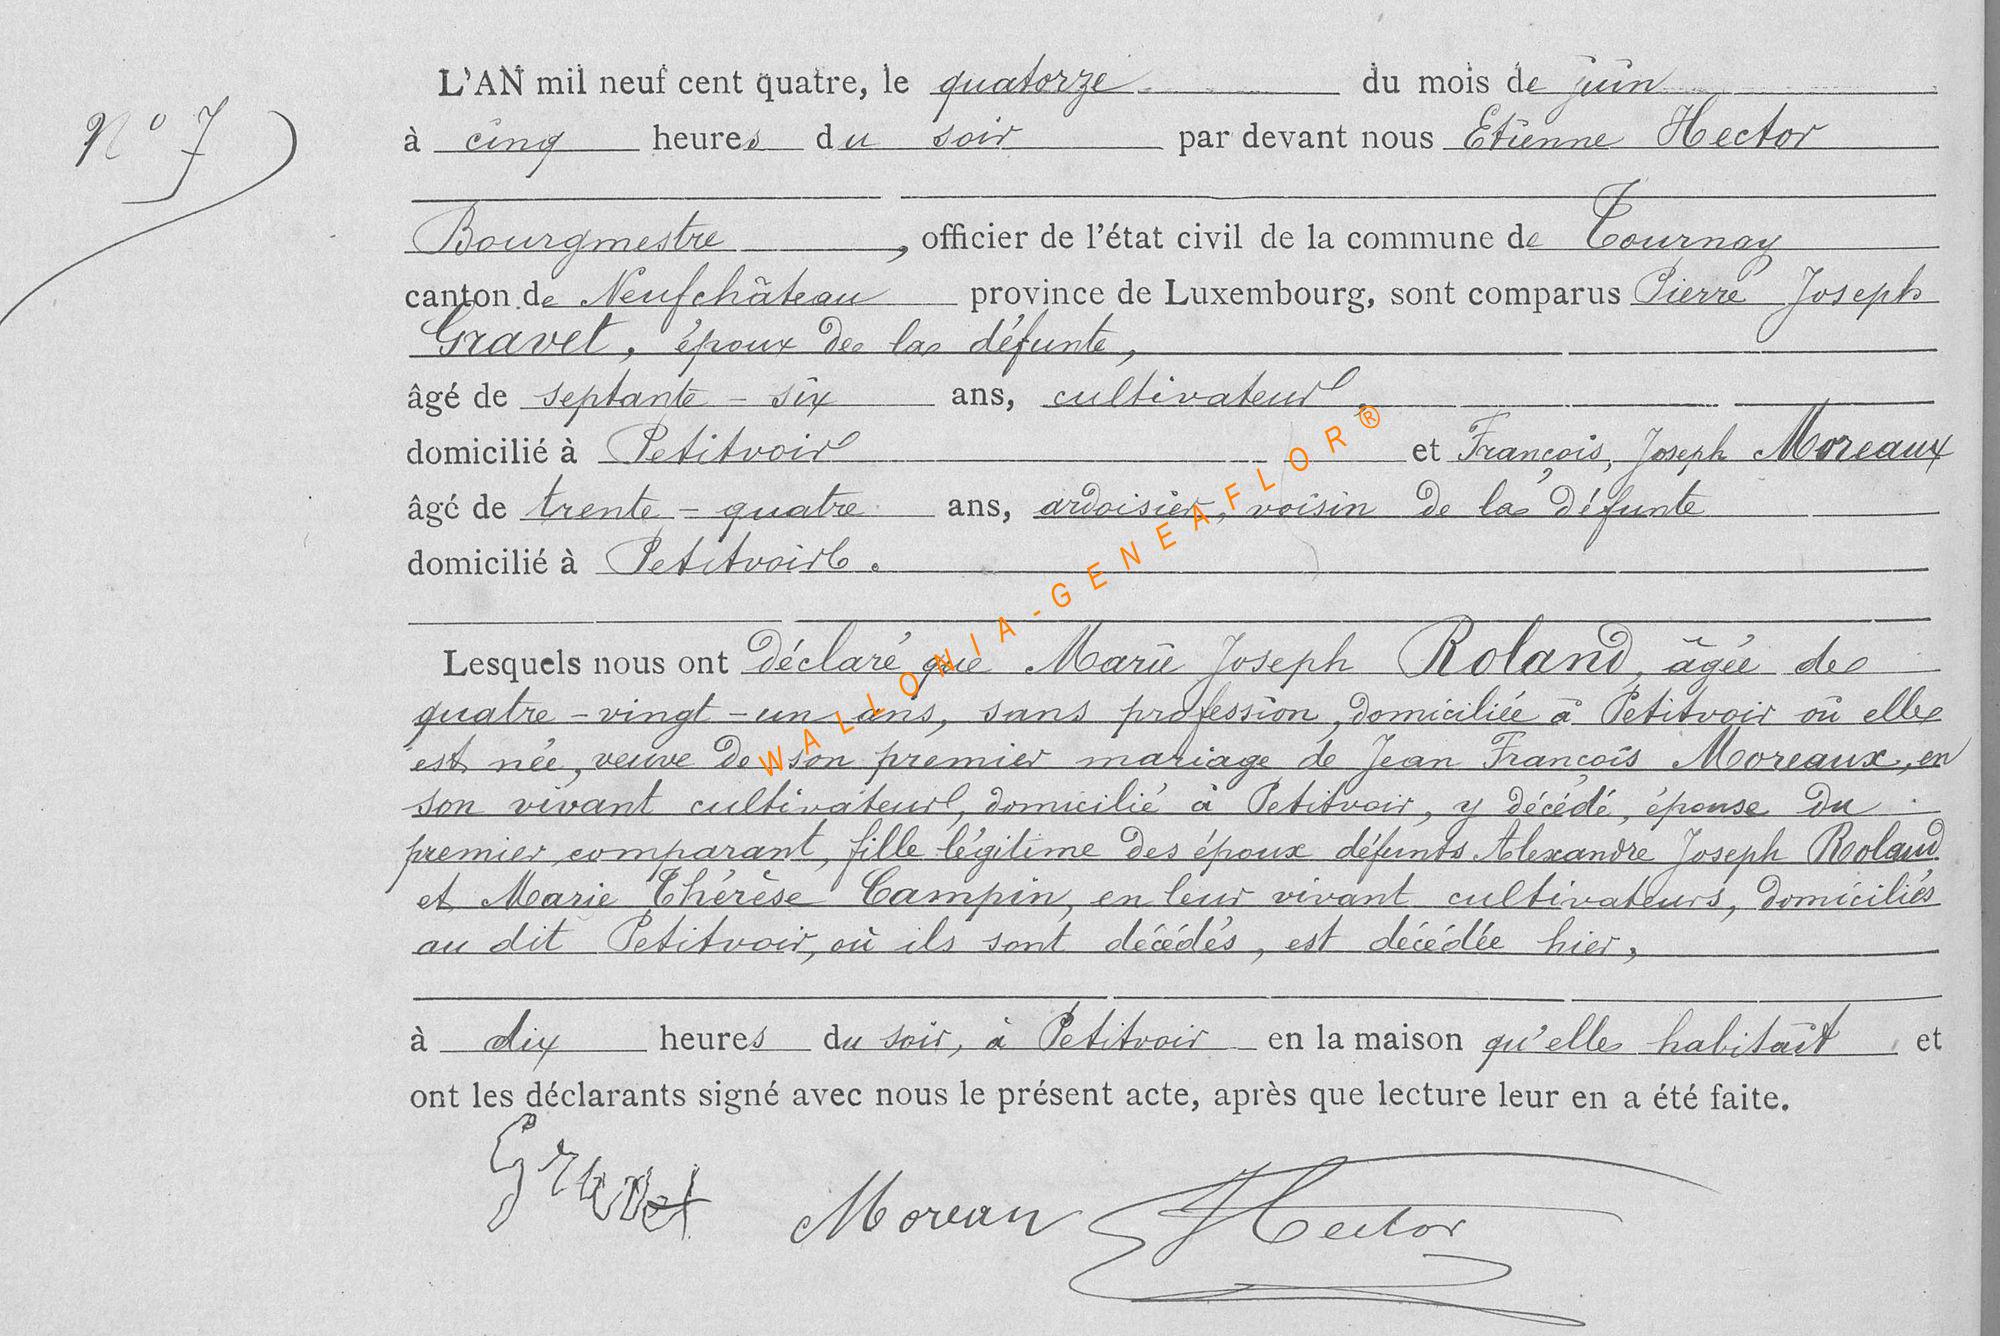 N° 7
L'AN mil neuf cent quatre, le quatorze du mois de juin
à cinq heures du soir par devant nous Etienne Hector
Bourgmestre, officier de l'état civil de la commune de Tournay
canton de Neufchâteau province de Luxembourg, sont comparus Pierre Joseph
Gravet, époux de la défunte,
âgé de septante-six ans, cultivateur,
domicilié à Petitvoir et François, Joseph Moreaux
âgé de trente-quatre ans, ardoisier, voisin de la défunte
domicilié à Petitvoir.
Lesquels nous ont déclaré que Marie Joseph Roland, âgée de
quatre-vingt-un ans, sans profession, domiciliée à Petitvoir où elle
est née, veuve de son premier mariage de Jean François Moreaux, en
son vivant cultivateur, domicilié à Petitvoir, y décédé, épouse du
premier comparant, fille légitime des époux défunts Alexandre Joseph Roland
et Marie Thérèse Campin, en leur vivant cultivateurs, domiciliés
au dit Petitvoir, où ils sont décédés, est décédée hier,
à dix heures du soir, à Petitvoir en la maison qu'elle habitait et
ont les déclarants signé avec nous le présent acte, après que lecture leur en a été faite.
Gravet Moreau Hector
WALLONIA-GENEAFLOR®